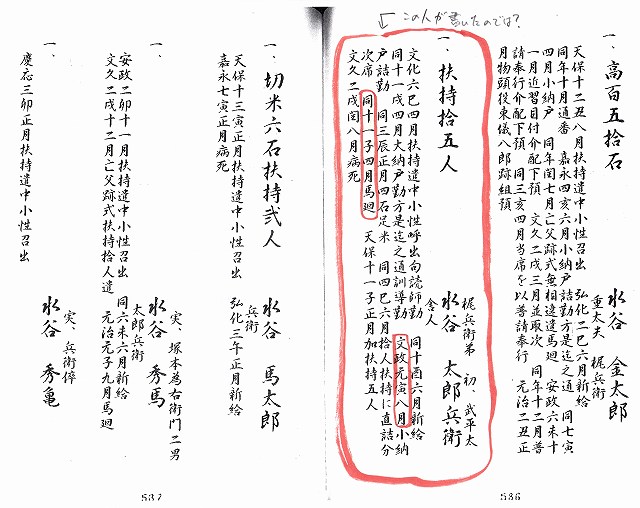 この人が書いたのでは?
一、高百五拾石
水谷 金太郎
重太夫 梶兵衛
天保十二丑八月扶持遣中小性召出 弘化二巳六月新給
同年十月通番 嘉永四亥六月小納戸詰勤方是迄之通 同七寅
四月小納戸 同年閏七月亡父跡式無相違遣馬廻 安政六未十
一月近習目付介配下預 文久二戌三月並取次 同年十二月普
請奉行介配下預 同三亥四月当席を以普請奉行 元治二丑正
月物頭役束儀八郎跡組預
一、扶持拾五人
梶兵衛弟 初、武平太
水谷 太郎兵衛
舎人
文化六巳四月扶持遣中小性呼出句読師勤 同十酉六月新給
同十一戌四月大納戸勤方是迄之通訓導勤 文政元寅八月小納
戸詰勤 同三辰正月四石足米 同四巳六月拾人扶持に直詰分
次席 同十一子四月馬廻 天保十一子正月加扶持五人
文久二戌閏八月病死
536
一、切米六石扶持弐人
水谷 馬太郎
兵衛
天保十三寅正月扶持遣中小性召出 弘化三年正月新給
嘉永七寅正月病死
一、
実、塚本為右衛門二男
水谷 秀馬
太郎兵衛
安政二卯十一月扶持遣中小性召出 同六未六月新給
文久二戌十二月亡父跡式扶持拾人遣 元治元子九月馬廻
一、
実、兵衛倅
水谷 秀亀
慶応三卯正月扶持遣中小性召出
537